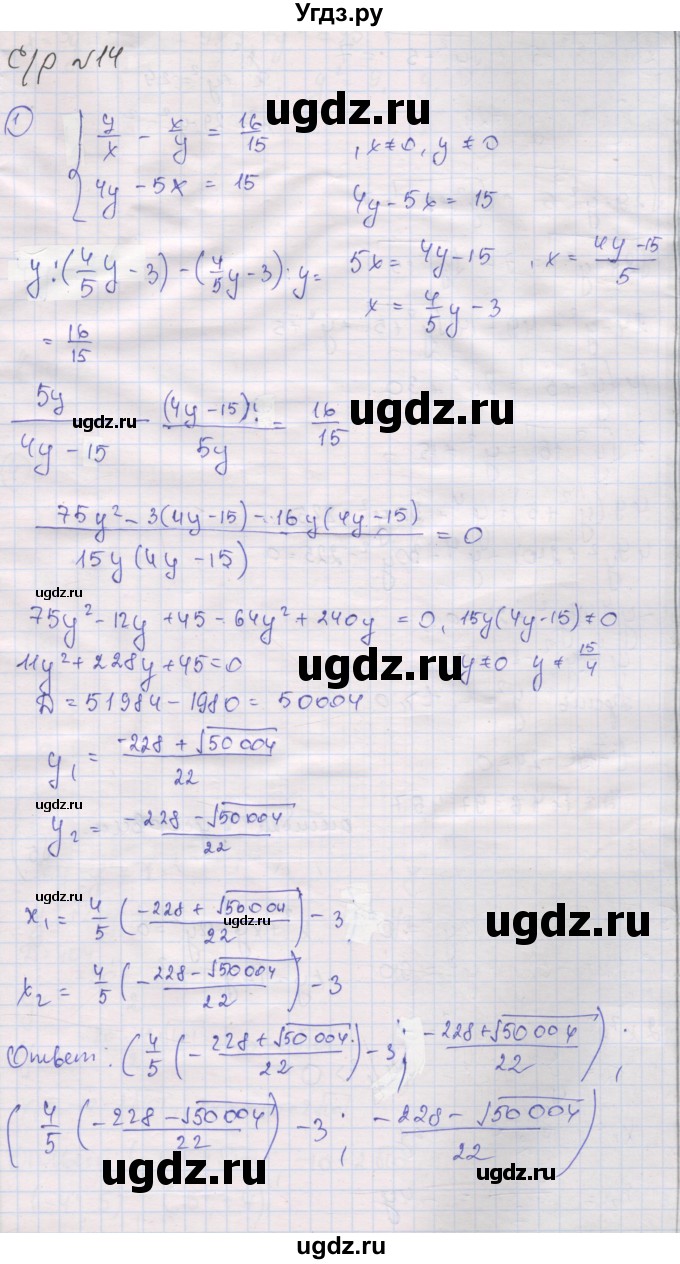 Угдз.ру
С/р №14
ugdz.ru
1) { y/x - x/y = 16/15 , x≠0, y≠0
4y - 5x = 15 4y - 5x = 15
y:(4/5 y - 3) - (4/5 y - 3):y = 5x = 4y - 15 , x = (4y - 15)/5
= 16/15 x = 4/5 y - 3
ugdz.ru
5y/(4y - 15) - (4y - 15)/5y = 16/15
ugdz.ru
ugdz.ru
(75y² - 3(4y - 15) - 16y(4y - 15))/(15y(4y - 15)) = 0
ugdz.ru
ugdz.ru
75y² - 12y + 45 - 64y² + 240y = 0, 15y(4y - 15) ≠ 0
11y² + 228y + 45 = 0 y ≠ 0 y ≠ 15/4
D = 51984 - 1980 = 50004
ugdz.ru
y₁ = (-228 + √50004)/22
ugdz.ru
y₂ = (-228 - √50004)/22
ugdz.ru
ugdz.ru
x₁ = 4/5 (-228 + √50004)/22) - 3
ugdz.ru
ugdz.ru
x₂ = 4/5 (-228 - √50004)/22) - 3
Ответ: (4/5 (-228 + √50004)/22) - 3; (-228 + √50004)/22);
ugdz.ru
(4/5 (-228 - √50004)/22) - 3; (-228 - √50004)/22)
ugdz.ru
ugdz.ru
ugdz.ru